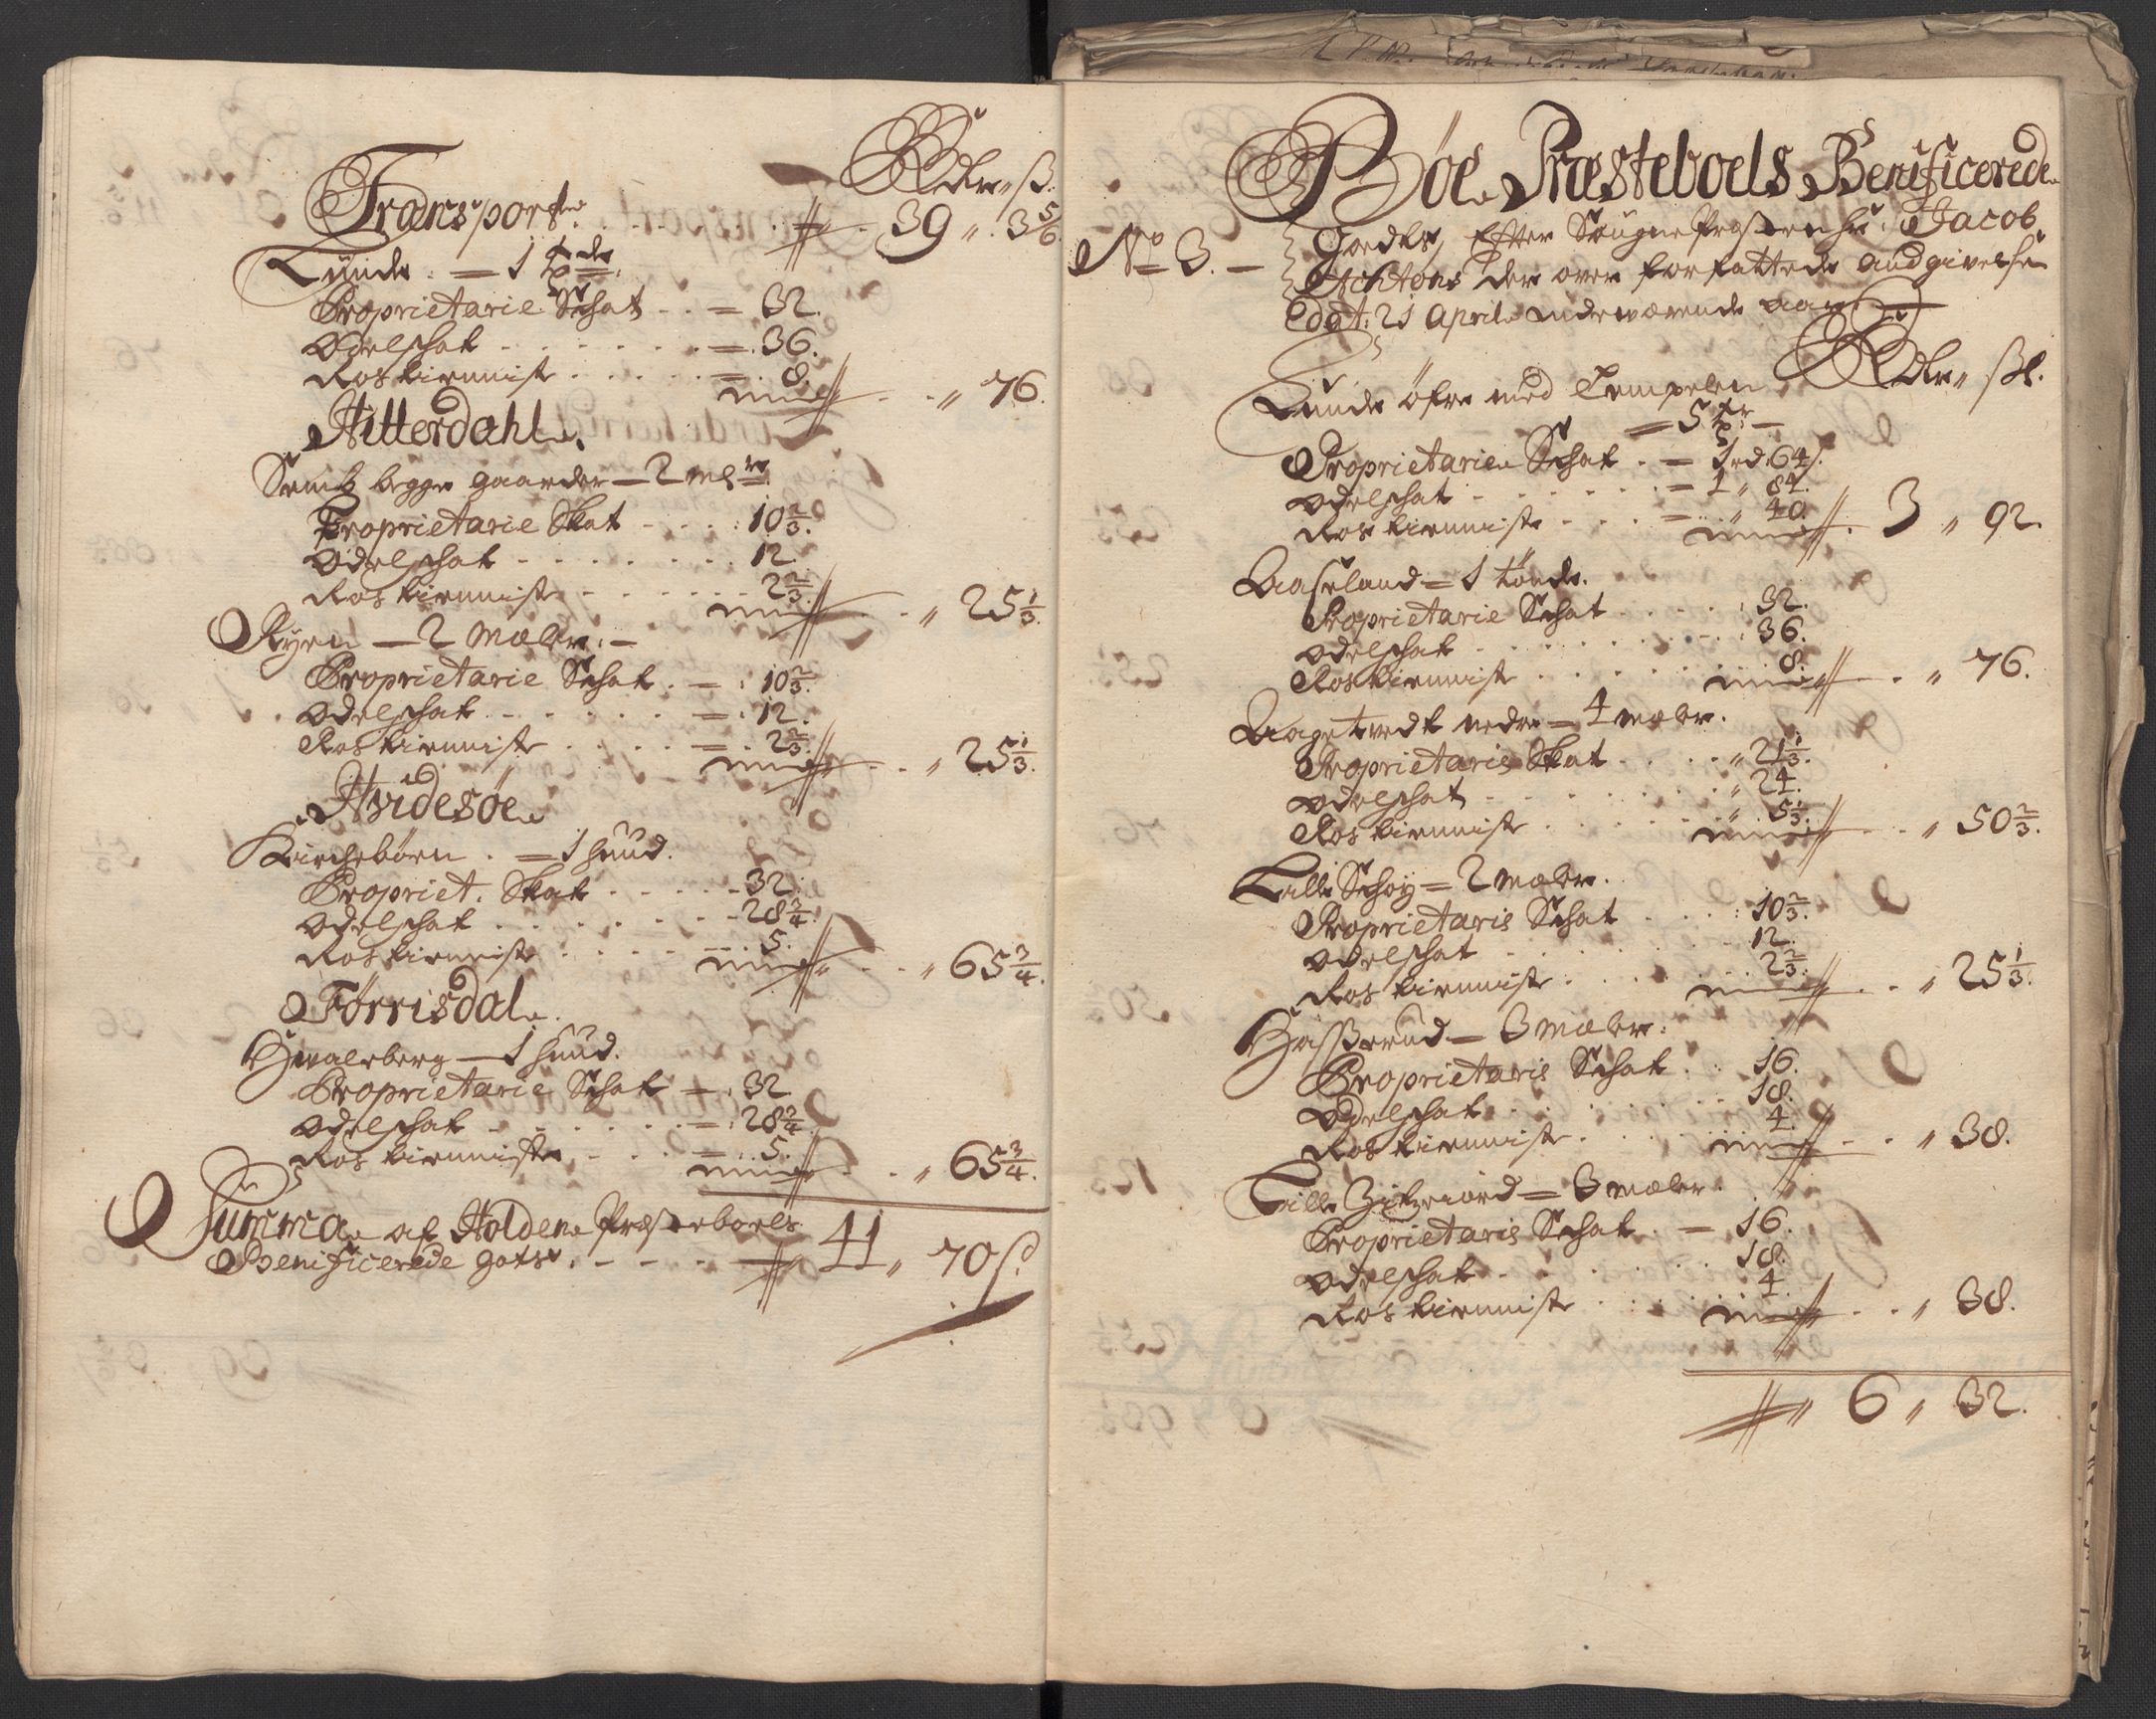 Rdlr " ß.
Transport . . . . . 39 " 3 5/6
Lunde . = 1 tde.
Proprietarie Schat . . = 32.
Odelschat . . . . . . = 36.
Rostieniste . . . . . = 8.
" 76.
Hitterdahl.
Semb begge gaarder — 2 mlr
Proprietarie Skat . . . 10 2/3.
Odelschat . . . . . . . 12.
Rostieniste . . . . . . 2 2/3.
" 25 1/3.
Ryen — 2 Mæler. —
Proprietarie Schat . = : 10 2/3.
Odelschat . . . . . = : 12.
Rostieniste . . . . = . 2 2/3.
" 25 1/3.
Hvidesøe
Kirchebøen . = 1 huud.
Propriet. Skat . . . . . 32.
Odelschat . . . . . . . 28 3/4.
Rostieniste . . . . . . 5.
" 65 3/4.
Førrisdal.
Hvalerberg — 1 huud.
Proprietarie Schat = : 32
Odelschat . . . . . = : 28 3/4.
Rostieniste . . . = . . 5.
" 65 3/4.
Summa af Holden Præsteboels
Benificerede gots . . . . 41 " 70 ß
Bøe Præsteboels Benificerede
No 3. — Goedts, Efter Sougne Præsten hr. Jacob
der over forfattede Andgivelse
Dat. 21 April indeværende aar
Rdlr " ßl.
Lunde øfre med Tempelen
= 5 tr. —
Proprietarie Schat . = 1 rd 64 ß.
Odelschat . . . . . . = 1 " 84.
Rostieniste . . . . = . " 40.
3 " 92.
Aaseland = 1 tønde.
Proprietarie Schat . . . . : 32.
Odelschat . . . . . . . . : 36.
Rostieniste . . . . . . . 8.
" 76.
nedre = 4 mæler.
Proprietaris Skat . . . . " 21 1/3.
Odelschat . . . . . . . " 24.
Rostieniste . . . . . . " 5 1/3.
" 50 2/3.
Lille Schoy = 2 mæler.
Proprietaris Schat . . . : 10 2/3.
Odelschat . . . . . . . 12.
Rostieniste . . . . . . 2 2/3.
" 25 1/3.
Haßerud = 3 mæler.
Proprietaris Schat . . 16.
Odelschat . . . . . . . 18.
Rostieniste . . . . . . 4.
" 38.
Lille = 3 mæler.
Proprietaris Schat . = 16.
Odelschat . . . . . . 18.
Rostieniste . . . . . . 4.
" 38.
6 " 32.